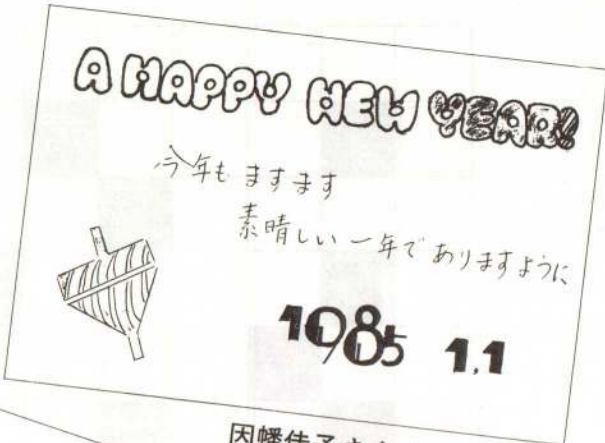 A HAPPY NEW YEAR!
今年もますます
素晴しい一年でありますように
1985 1.1
因幡佳子さん